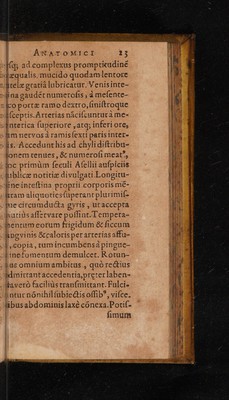 ANATOMICI 23
ad complexus promptitudinē
æqualis. mucido quodam lentoce
gratiâ lobricatur. Venis inte-
gaudēt numerosis, à mesente-
co portæ ramo dextro, sinistroque
sceptis. Arterias nāciscuntur à me-
enterica superiore, atq; inferiore,
nervos à ramis sexti paris inter-
Accedunt his ad chyli distribu-
onem tenues, & numerosi meatꝰ,
primùm seculi Asellii auspiciis
ublicæ notitiæ divulgati. Longitu-
intestina proprii corporis mē-
aliquoties superant plurimis-
circumducta gyris, ut accepta
asservare possint. Tempera-
entum eorum frigidum & siccum
sanguinis & caloris per arterias affu-
copia, tum incumbens à pingue-
fomentum demulcet. Rotun-
omnium ambitus, quò rectius
dmittant accedentia, prȩter laben-
verò facilius transmittant. Fulci-
untur nō nihil subiectis ossibꝰ, visce.
ibus abdominis laxè cōnexa. Potis-
simum